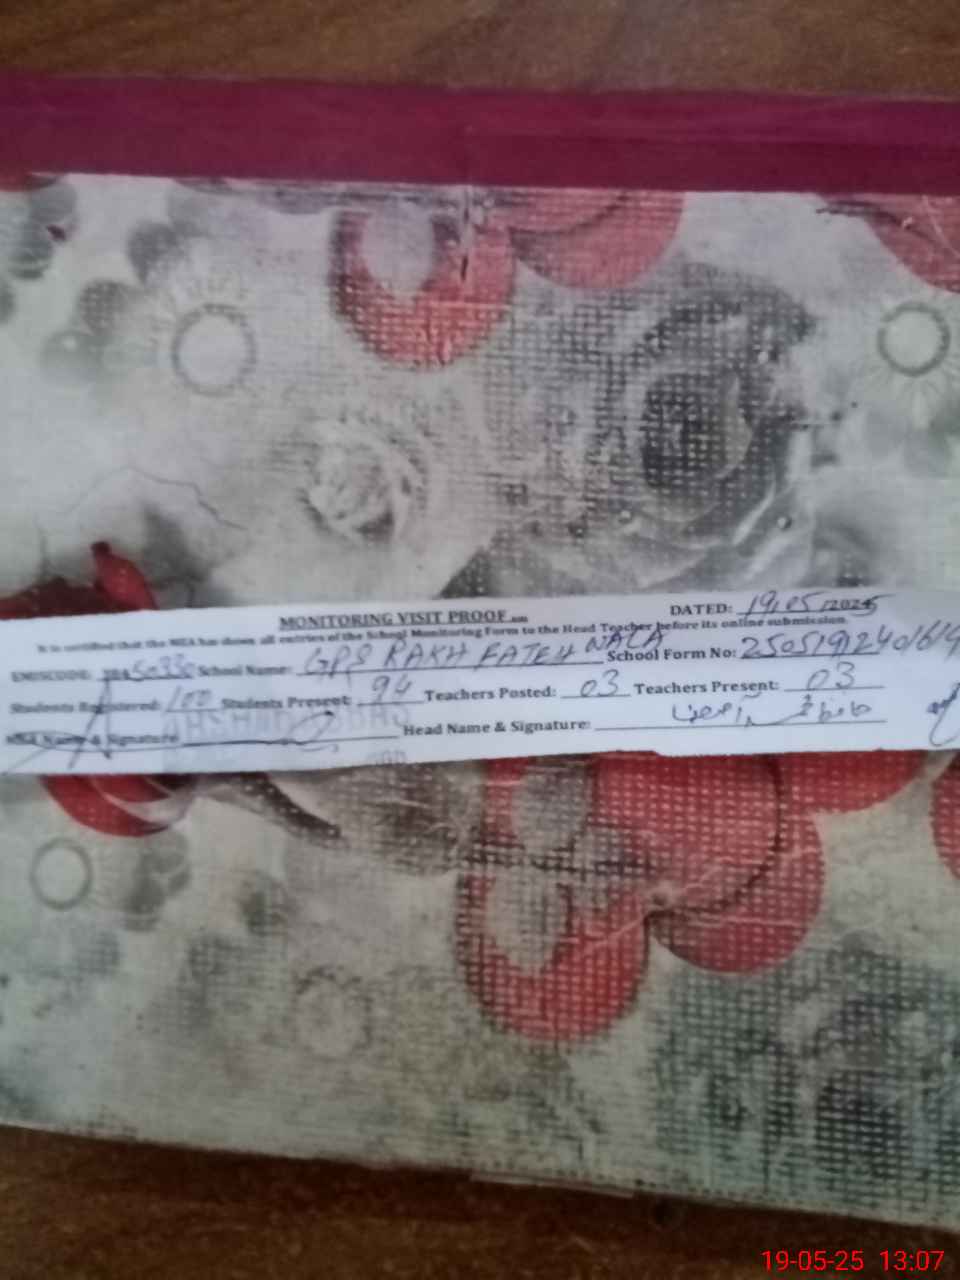 MONITORING VISIT PROOF
DATED: 19/05/2025
It is certified that the MEA has shown all entries of the School Monitoring Form to the Head Teacher before its online submission.
EMISCODE: 50330 School Name: GPS RAKH FATEH NALA School Form No:
Students Registered: 100 Students Present: 94 Teachers Posted: 03 Teachers Present: 03
MEA Name & Signature: Head Name & Signature:
19-05-25 13:07